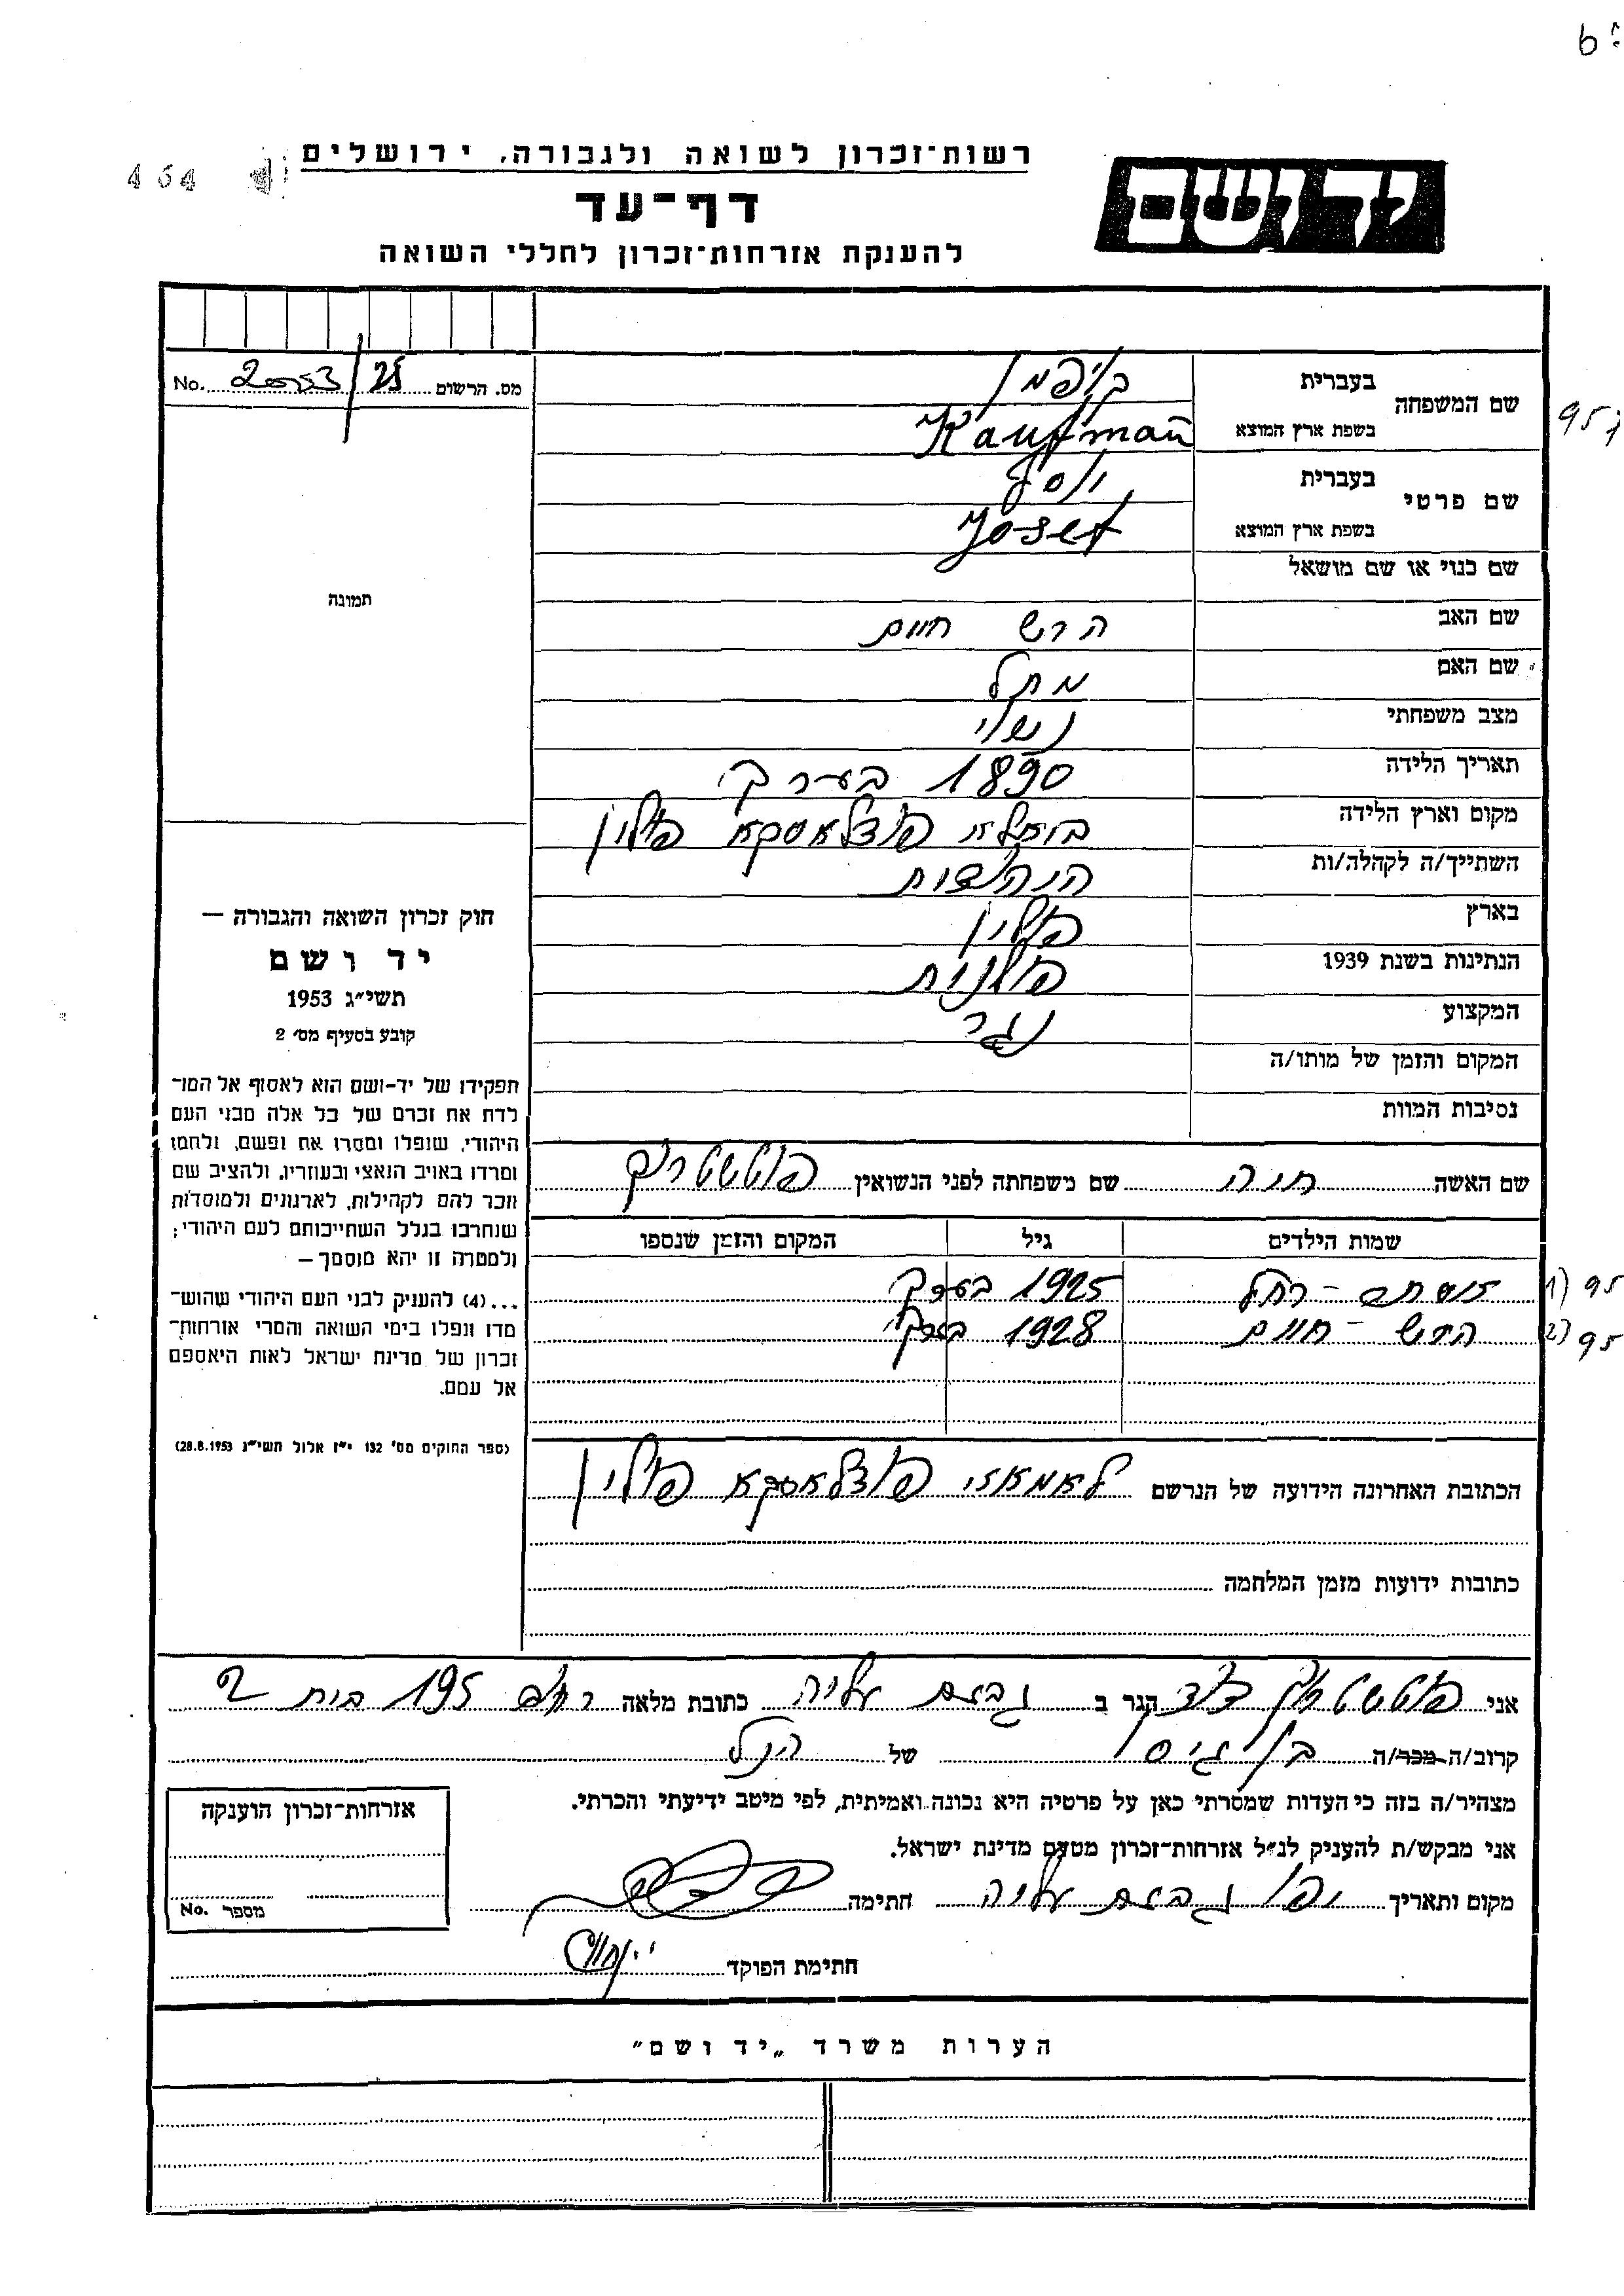 רשות־זכרון לשואה ולגבורה, ירושלים
יד ושם
דף־עד
להענקת אזרחות־זכרון לחללי השואה
464
מס. הרשום 25/20053 No.
שם המשפחה
בעברית קויפמן
בשפת ארץ המוצא Kaufman
שם פרטי
בעברית יוסף
בשפת ארץ המוצא Josef
שם כנוי או שם מושאל
שם האב הרש חיים
שם האם מתל
מצב משפחתי נשוי
תאריך הלידה 1890 בערך
מקום וארץ הלידה פודלאסקא פולין
השתייך/ה לקהלה/ות
בארץ פולין
הנתינות בשנת 1939 פולנית
המקצוע נגר
המקום והזמן של מותו/ה
נסיבות המוות
תמונה
חוק זכרון השואה והגבורה —
יד ושם
תשי״ג 1953
קובע בסעיף מס׳ 2
תפקידו של יד-ושם הוא לאסוף אל המו־
לדת את זכרם של כל אלה מבני העם
היהודי, שנפלו ומסרו את נפשם, נלחמו
ומרדו באויב הנאצי ובעוזריו, ולהציב שם
וזכר להם לקהילות, לארגונים ולמוסדות
שנחרבו בגלל השתייכותם לעם היהודי;
ולמטרה זו יהא מוסמך —
...(4) להעניק לבני העם היהודי שהוש־
מדו ונפלו בימי השואה והמרי אזרחות־
זכרון של מדינת ישראל לאות היאספם
אל עמם.
(ספר החוקים מס׳ 132 י״ז אלול תשי״ג 28.8.1953)
שם האשה חיה שם משפחתה לפני הנשואין
שמות הילדים גיל המקום והזמן שנספו
רחל 1925 בערך
הירש - חיים 1928 בערך
הכתובת האחרונה הידועה של הנרשם לאמאזי פודלאסקא פולין
כתובות ידועות מזמן המלחמה
אני דוד הגר ב גבעת עליה כתובת מלאה רחוב 195 בית 2
קרוב/ה מכר/ה בן גיסו של הנ״ל
מצהיר/ה בזה כי העדות שמסרתי כאן על פרטיה היא נכונה ואמיתית, לפי מיטב ידיעתי והכרתי.
אני מבקש/ת להעניק לנ״ל אזרחות־זכרון מטעם מדינת ישראל.
מקום ותאריך יפו גבעת עליה חתימה
חתימת הפוקד
אזרחות־זכרון הוענקה
מספר No.
הערות משרד „יד ושם״